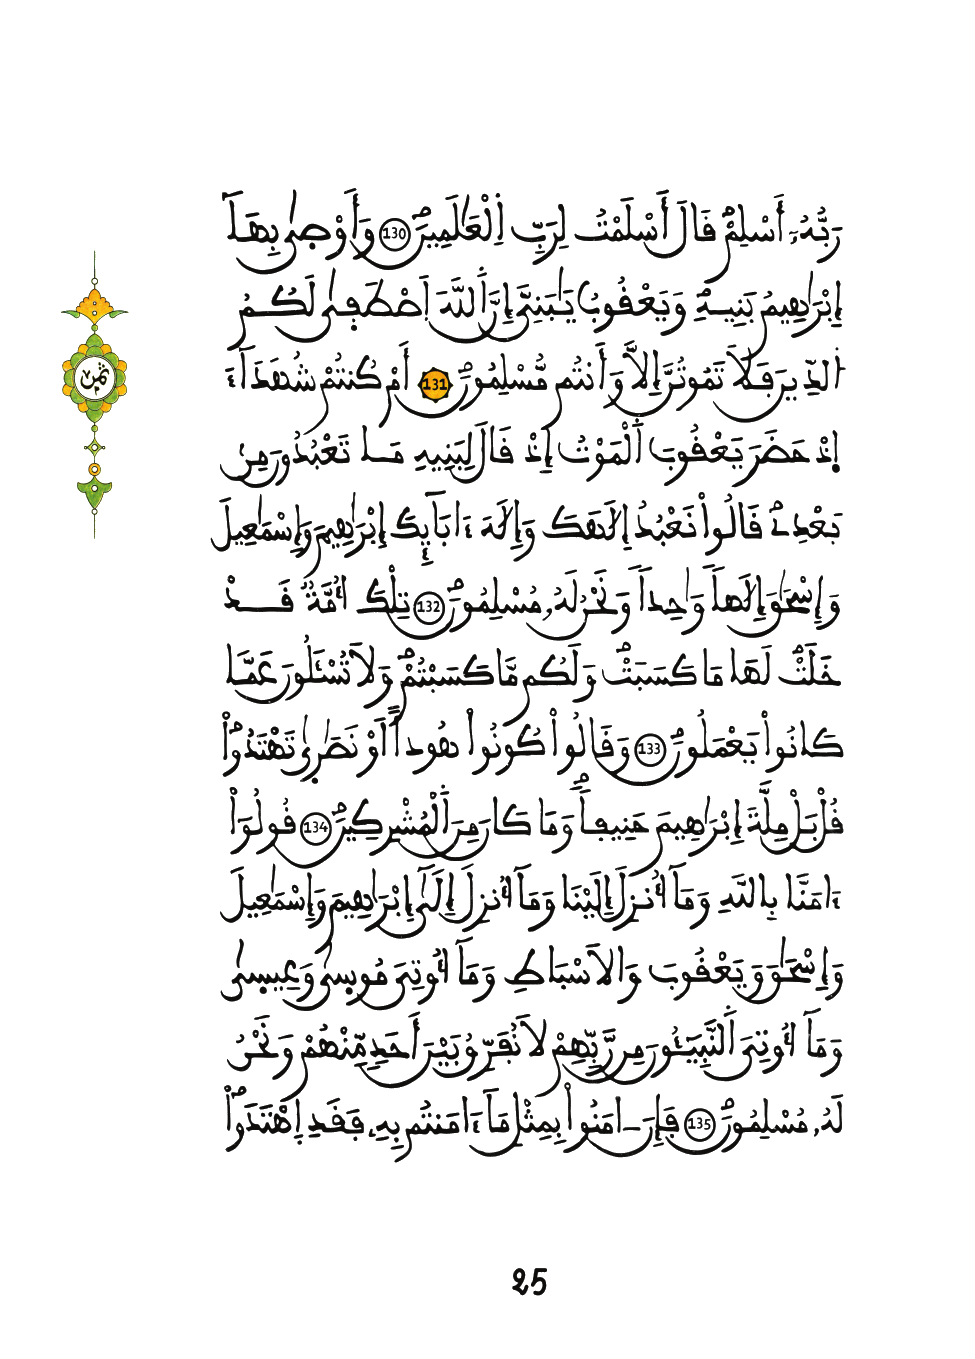 رَبُّهُۥٓ أَسْلِمْۖ قَالَ أَسْلَمْتُ لِرَبِّ اِ۬لْعَٰلَمِينَۖ 130 وَأَوْص۪ىٰ بِهَآ
إِبْرَٰهِيمُ بَنِيهِۖ وَيَعْقُوبُۖ يَٰبَنِيَّ إِنَّ اَ۬للَّهَ اَ۪صْطَف۪ىٰ لَكُمُ
اُ۬لدِّينَ فَلَا تَمُوتُنَّ إِلَّا وَأَنتُم مُّسْلِمُونَۖ 131 أَمْ كُنتُمْ شُهَدَآءَ
اِ۪ذْ حَضَرَ يَعْقُوبَ اَ۬لْمَوْتُ إِذْ قَالَ لِبَنِيهِ مَا تَعْبُدُونَ مِنۢ
بَعْدِےۖ قَالُواْ نَعْبُدُ إِلَٰهَكَ وَإِلَٰهَ ءَابَآئِكَ إِبْرَٰهِيمَ وَإِسْمَٰعِيلَ
وَإِسْحَٰقَ إِلَٰهاٗ وَٰحِداٗ وَنَحْنُ لَهُۥ مُسْلِمُونَۖ 132 تِلْكَ أُمَّةٞ قَدْ
خَلَتْۖ لَهَا مَا كَسَبَتْۖ وَلَكُم مَّا كَسَبْتُمْۖ وَلَا تُسْـَٔلُونَ عَمَّا
كَانُواْ يَعْمَلُونَۖ 133 وَقَالُواْ كُونُواْ هُوداً اَوْ نَصَٰر۪ىٰ تَهْتَدُواْۖ
قُلْ بَلْ مِلَّةَ إِبْرَٰهِيمَ حَنِيفاٗۖ وَمَا كَانَ مِنَ اَ۬لْمُشْرِكِينَۖ 134 قُولُوٓاْ
ءَامَنَّا بِاللَّهِ وَمَآ أُنزِلَ إِلَيْنَا وَمَآ أُنزِلَ إِلَىٰٓ إِبْرَٰهِيمَ وَإِسْمَٰعِيلَ
وَإِسْحَٰقَ وَيَعْقُوبَ وَالَاسْبَاطِ وَمَآ أُوتِيَ مُوس۪ىٰ وَعِيس۪ىٰ
وَمَآ أُوتِيَ اَ۬لنَّبِيٓـُٔونَ مِن رَّبِّهِمْ لَا نُفَرِّقُ بَيْنَ أَحَدٖ مِّنْهُمْ وَنَحْنُ
لَهُۥ مُسْلِمُونَۖ 135 فَإِنَ اٰمَنُواْ بِمِثْلِ مَآ ءَامَنتُم بِهِۦ فَقَدِ اِ۪هْتَدَواْۖ
ثمن
25